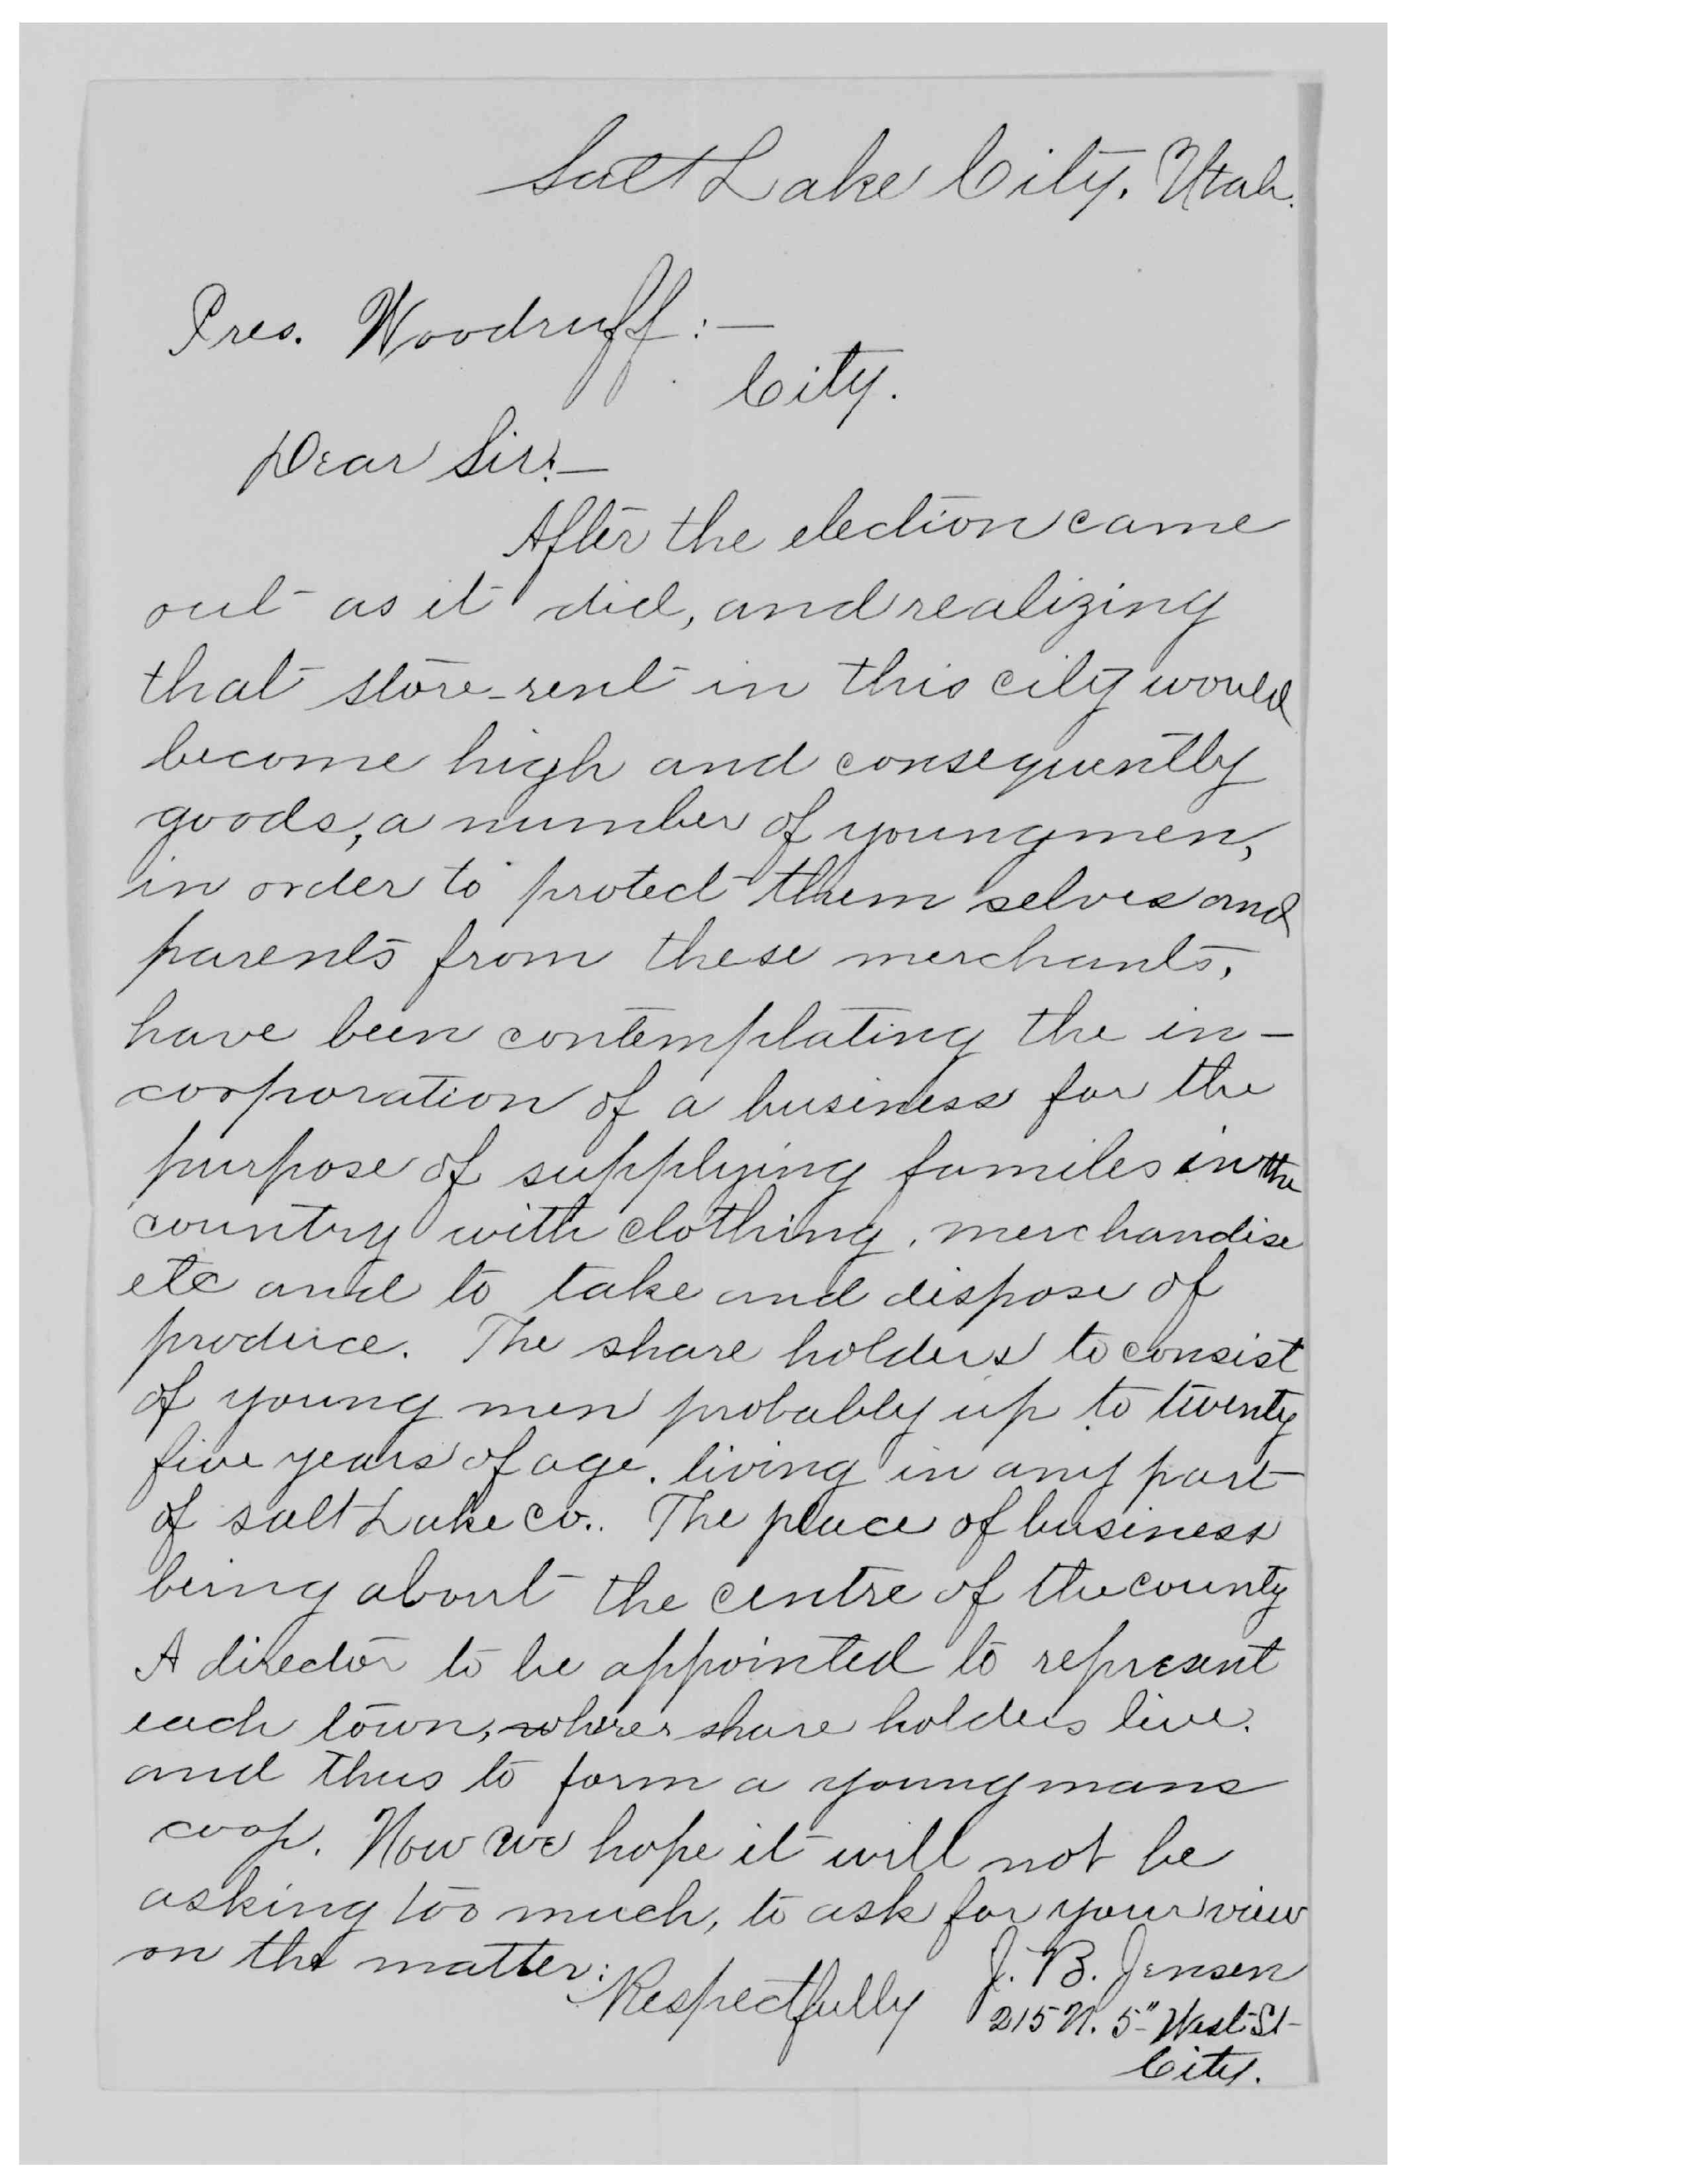 Salt Lake City. Utah.
Pres. Woodruff:—
City.
Dear Sir:—
After the election came
out as it did, and realizing
that store-rent in this city would
become high and consequently
goods, a number of young men,
in order to protect them selves and
parents from these merchants,
have been contemplating the in-
corporation of a business for the
purpose of supplying familes in the
country with clothing, merchandise
etc and to take and dispose of
produce. The share holders to consist
of young men probably up to twenty
five years of age. living in any part
of salt Lake Co.. The place of business
being about the centre of the county
A director to be appointed to represent
each town, where share holders live.
and thus to form a young mans
coop. Now we hope it will not be
asking too much, to ask for your view
on the matter:
Respectfully J. B. Jensen
215 N. 5" West St
City.